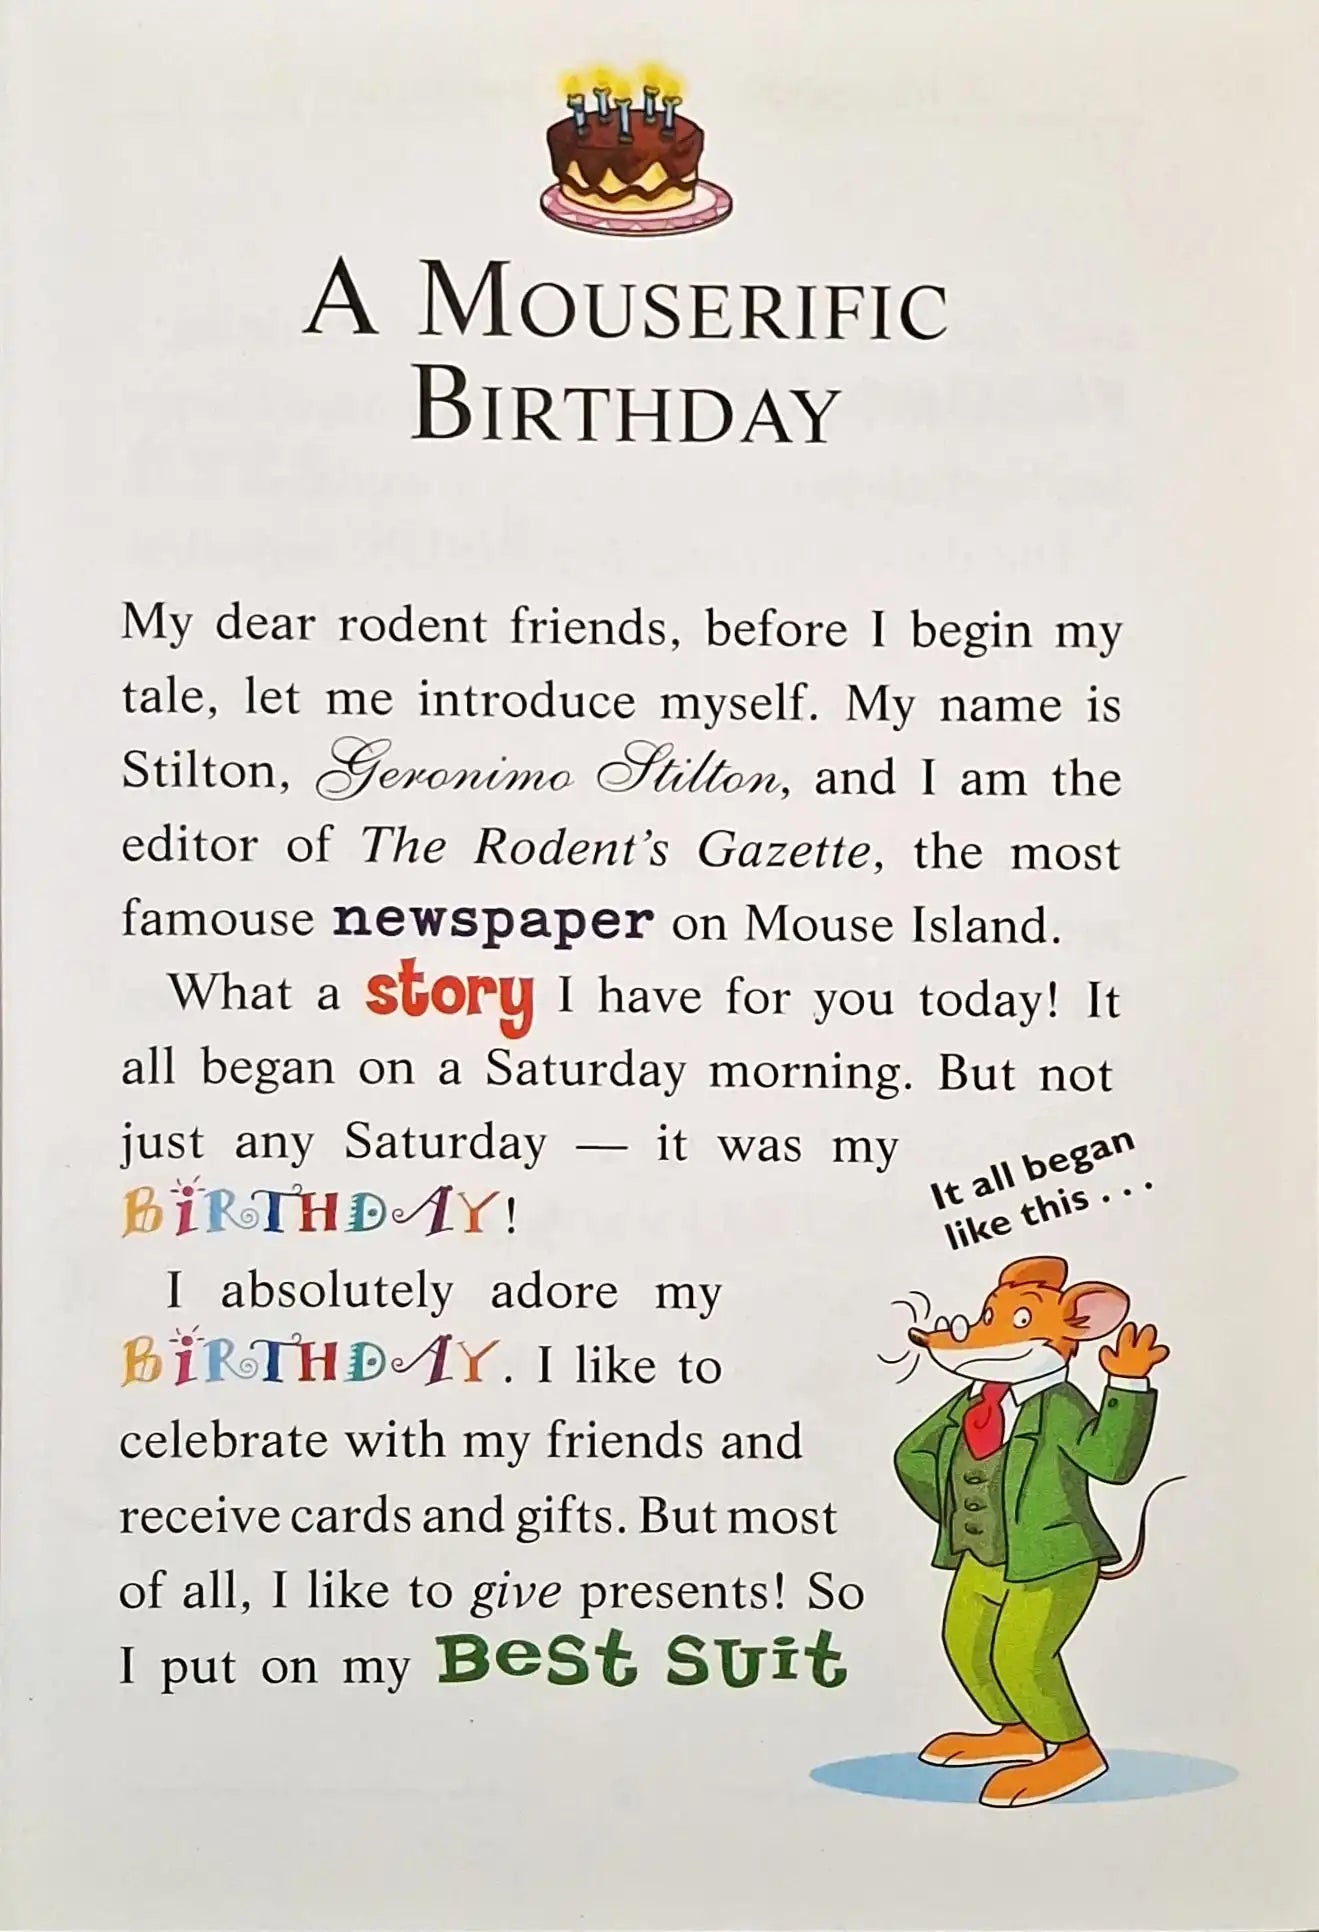 A MOUSERIFIC
BIRTHDAY
My dear rodent friends, before I begin my
tale, let me introduce myself. My name is
Stilton, Geronimo Stilton, and I am the
editor of The Rodent's Gazette, the most
famouse newspaper on Mouse Island.
What a story I have for you today! It
all began on a Saturday morning. But not
just any Saturday — it was my
BiRTHDAY!
I absolutely adore my
BiRTHDAY. I like to
celebrate with my friends and
receive cards and gifts. But most
of all, I like to give presents! So
I put on my BeSt SUit
It all began
like this . . .